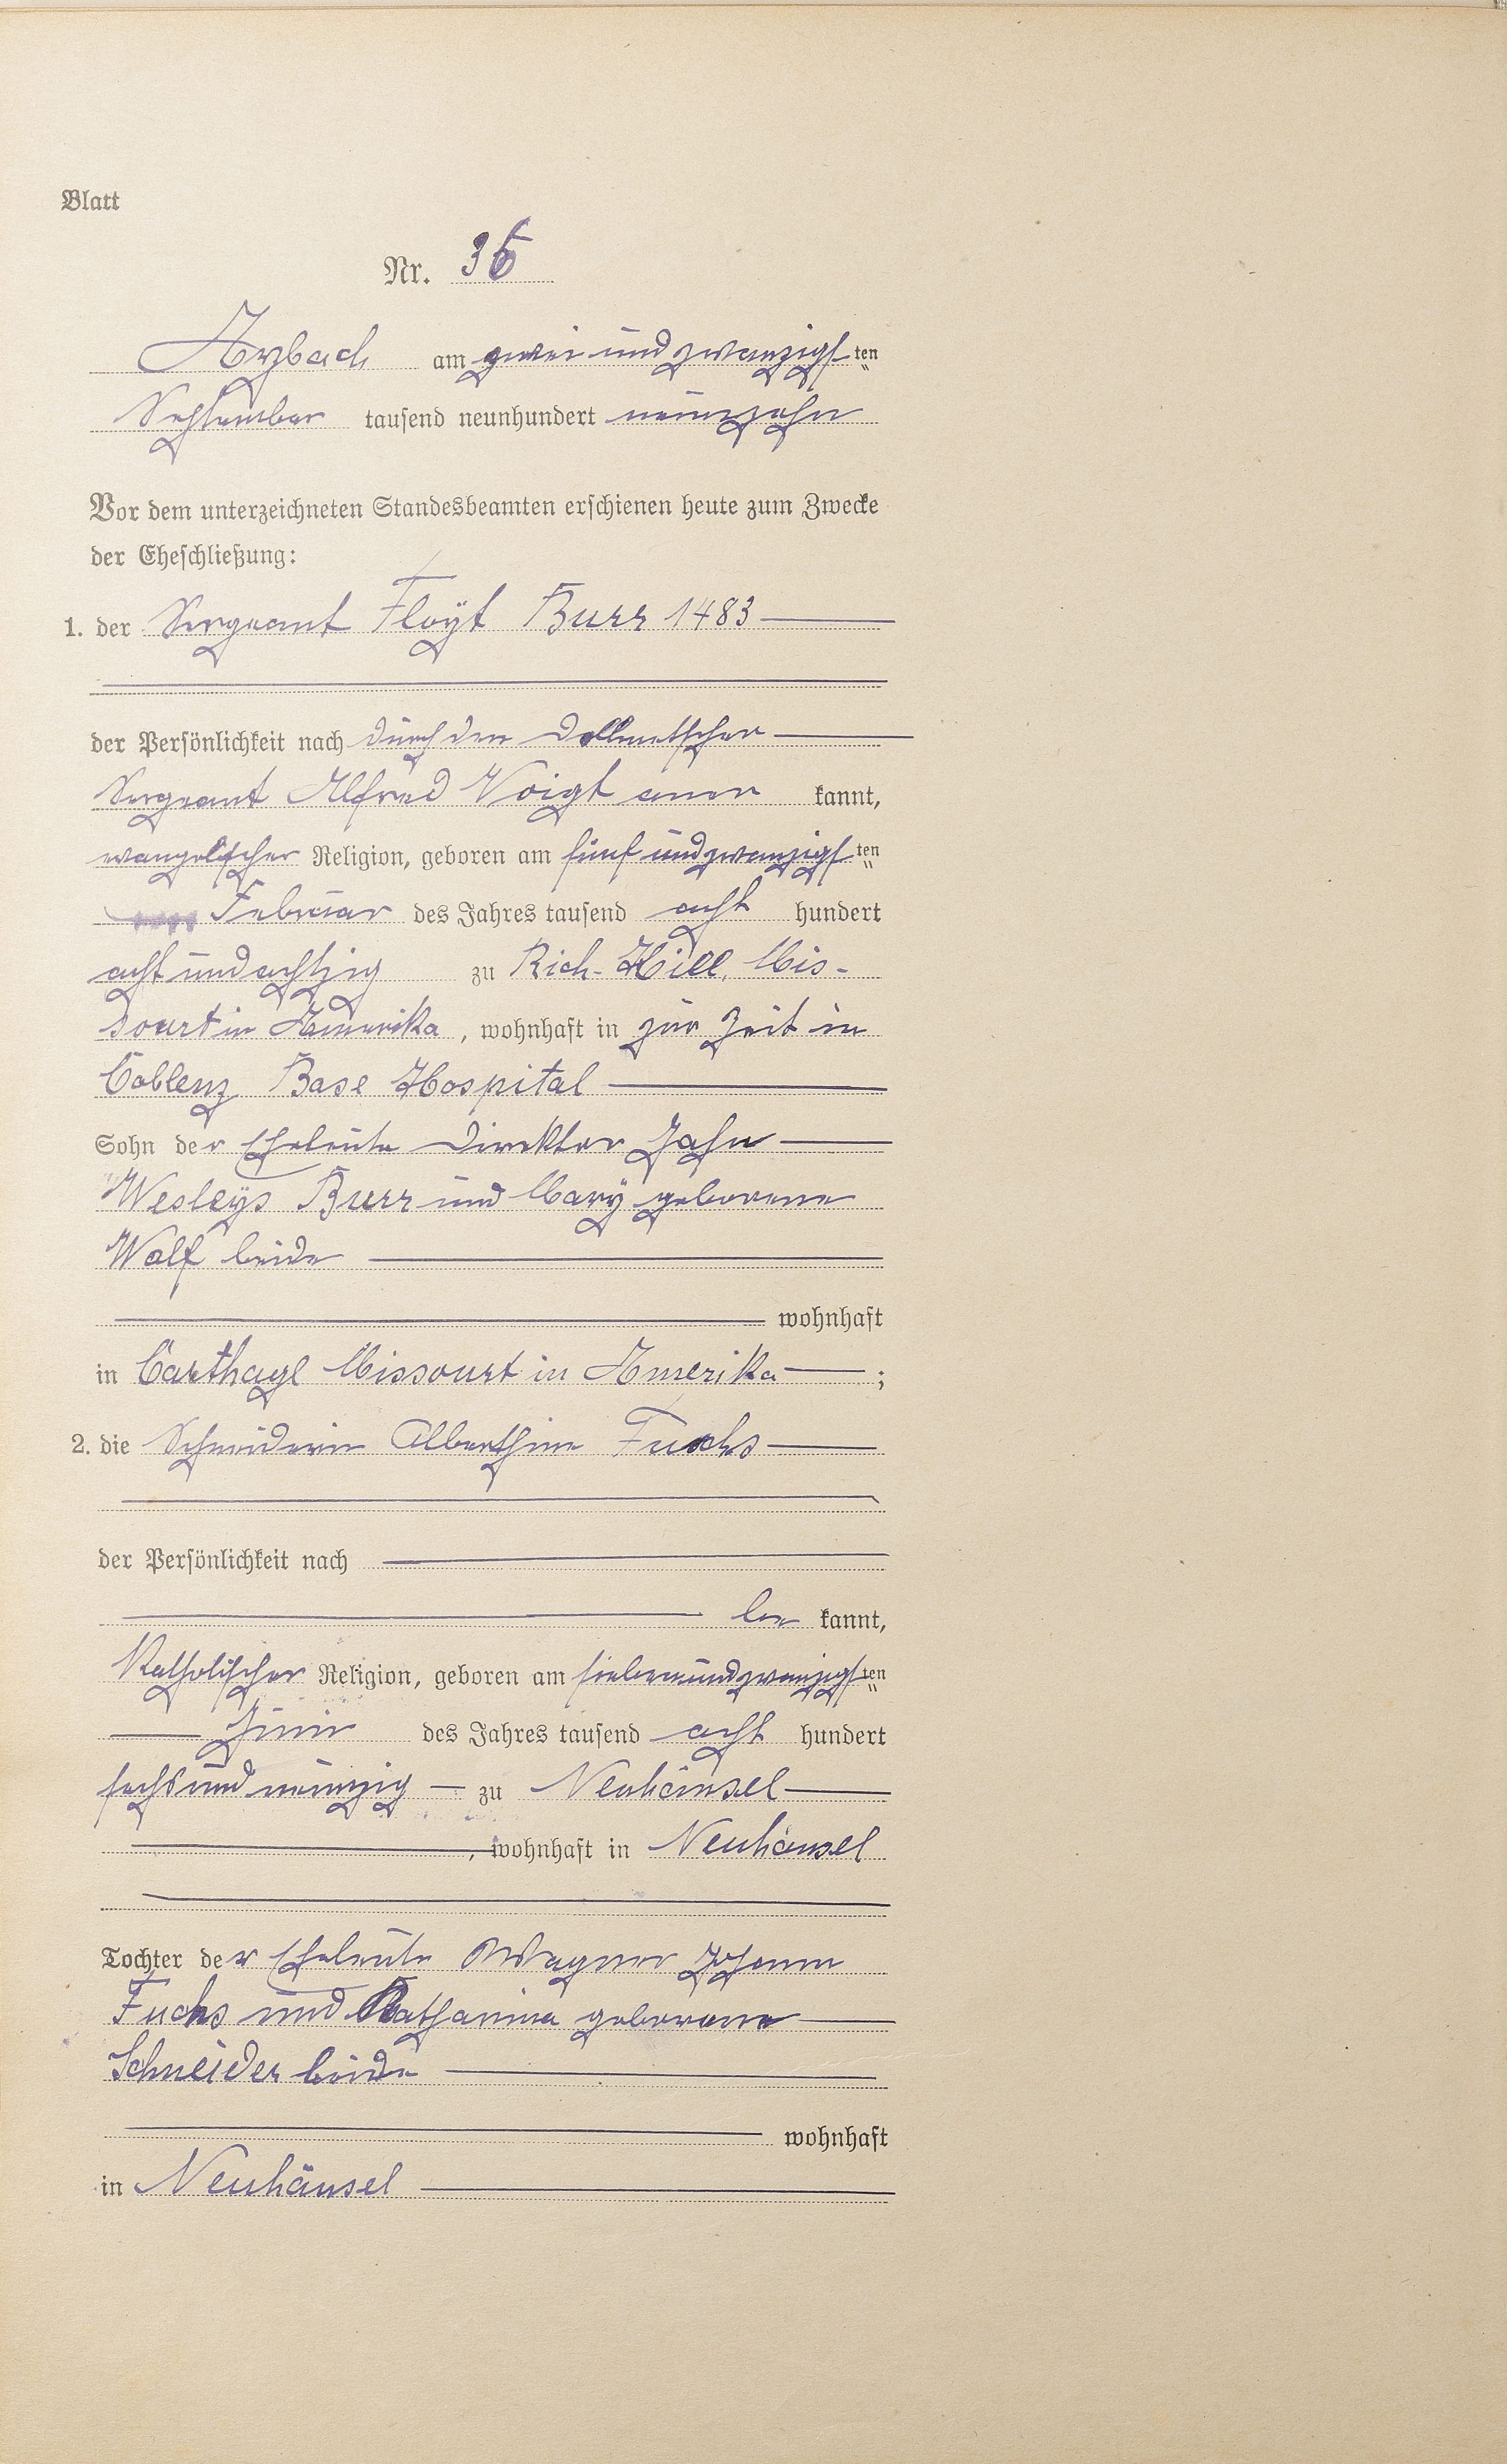 Blatt
Nr. 36
Arzbach am zwei und zwanzigsten
September tausend neunhundert neunzehn
Vor dem unterzeichneten Standesbeamten erschienen heute zum Zwecke
der Eheschließung:
1. der Sergeant Floyt Burr 1483
der Persönlichkeit nach durch den Dollmetscher
Sergeant Alfred Voigt aner kannt,
evangelischer Religion, geboren am fünf und zwanzigsten
Februar des Jahres tausend acht hundert
acht und achtzig zu Rich-Hill, Mis-
sourt in Amerika, wohnhaft in zur Zeit in
Coblenz Base Hospital
Sohn der Eheleute Direktor John
Wesleys Burr und Mary geborene
Wolf beide
wohnhaft
in Carthage Missourt in Amerika;
2. die Schneiderin Alberthine Fuchs
der Persönlichkeit nach
be kannt,
Katholischer Religion, geboren am siebenundzwanzigsten
Juni des Jahres tausend acht hundert
sechs und neunzig zu Neuhäusel
, wohnhaft in Neuhäusel
Tochter der Eheleute Wagner Johann
Fuchs und Katharina geborene
Schneider beide
wohnhaft
in Neuhäusel